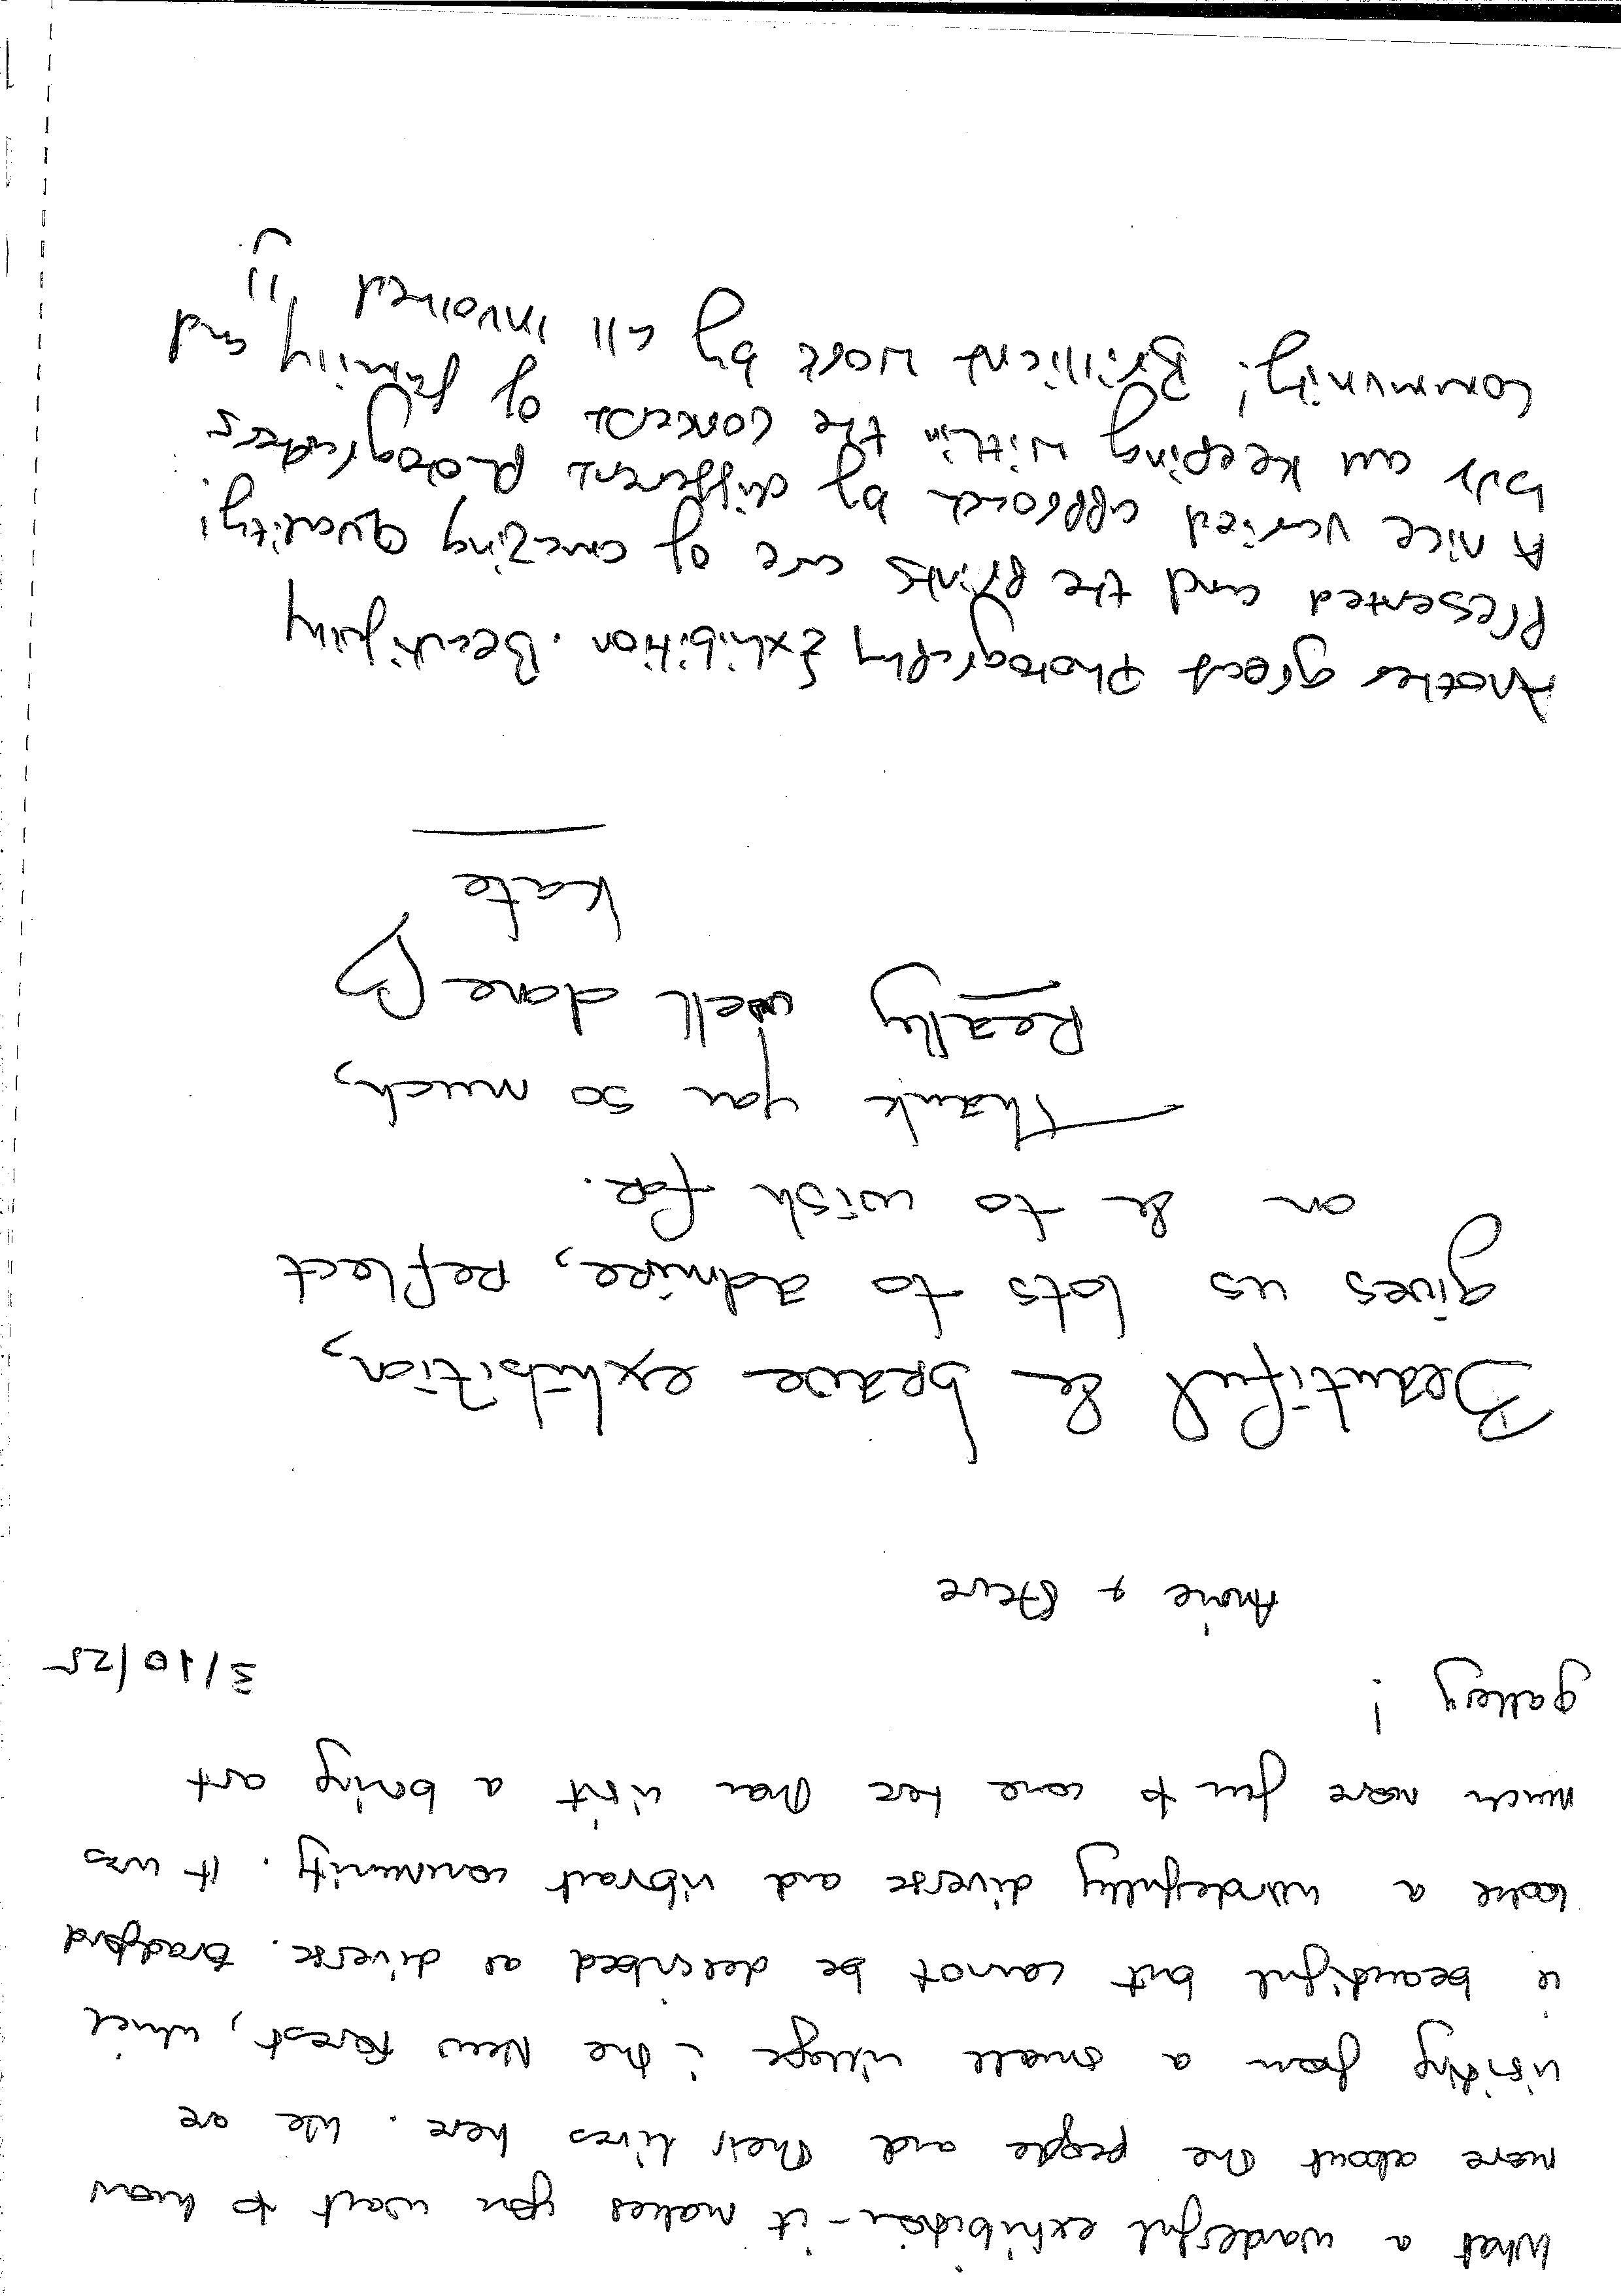 What a wonderful exhibition - it makes you want to know
more about the people and their lives here. We are
visiting from a small village in the New Forest, which
is beautiful but cannot be described as diverse. Bradford
a wonderfully diverse and vibrant community. It was
much more fun to come here than visit a boring art
gallery!
3/10/25
Annie + Steve
Beautiful & brave exhibition,
gives us lots to admire, reflect
on & to wish for.
Thank you so much,
Really well done
Kate
Another great Photography Exhibition. Beautifully
Presented and the prints are of amazing Quality!
A nice varied approach by different photographers
but all keeping within the concept of family and
community! Brilliant work by all involved